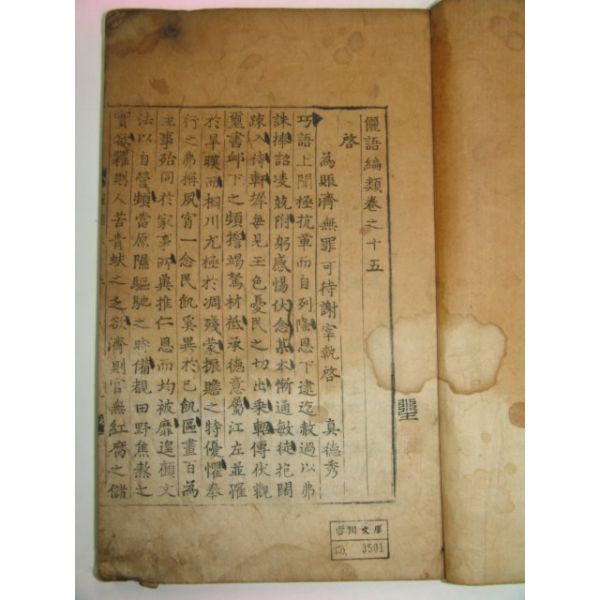 儷語編類卷之十五
啓
為賑濟無罪可待謝宰執啓 真德秀
巧語上聞極抗章而自列隆恩下逮迄赦過以弗
誅捧詔凌兢附躬感惕伏念某本慚通敏徒抱闊
疎入侍軒墀每見玉色憂民之切出乘軺傳伏觀
璽書卹下之頻擔竭駑材祗承德意屬江左並罹
於旱暵而桐川尤極於凋殘蒙振贍之特優懼奉
行之弗稱夙宵一念民飢奚異於己飢區畫百為
王事殆同於家事所冀推仁恩而均被靡遑顧文
法以自營頻當原隰驅馳之時備覩田野焦熬之
實欲糴則人苦青蚨之乏欲濟則官無紅腐之儲
문고
No. 3501